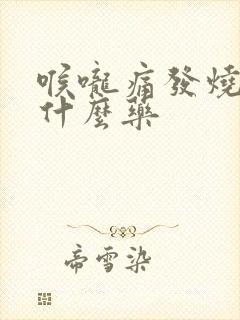 喉嚨痛發燒
什麼藥
帝雪染